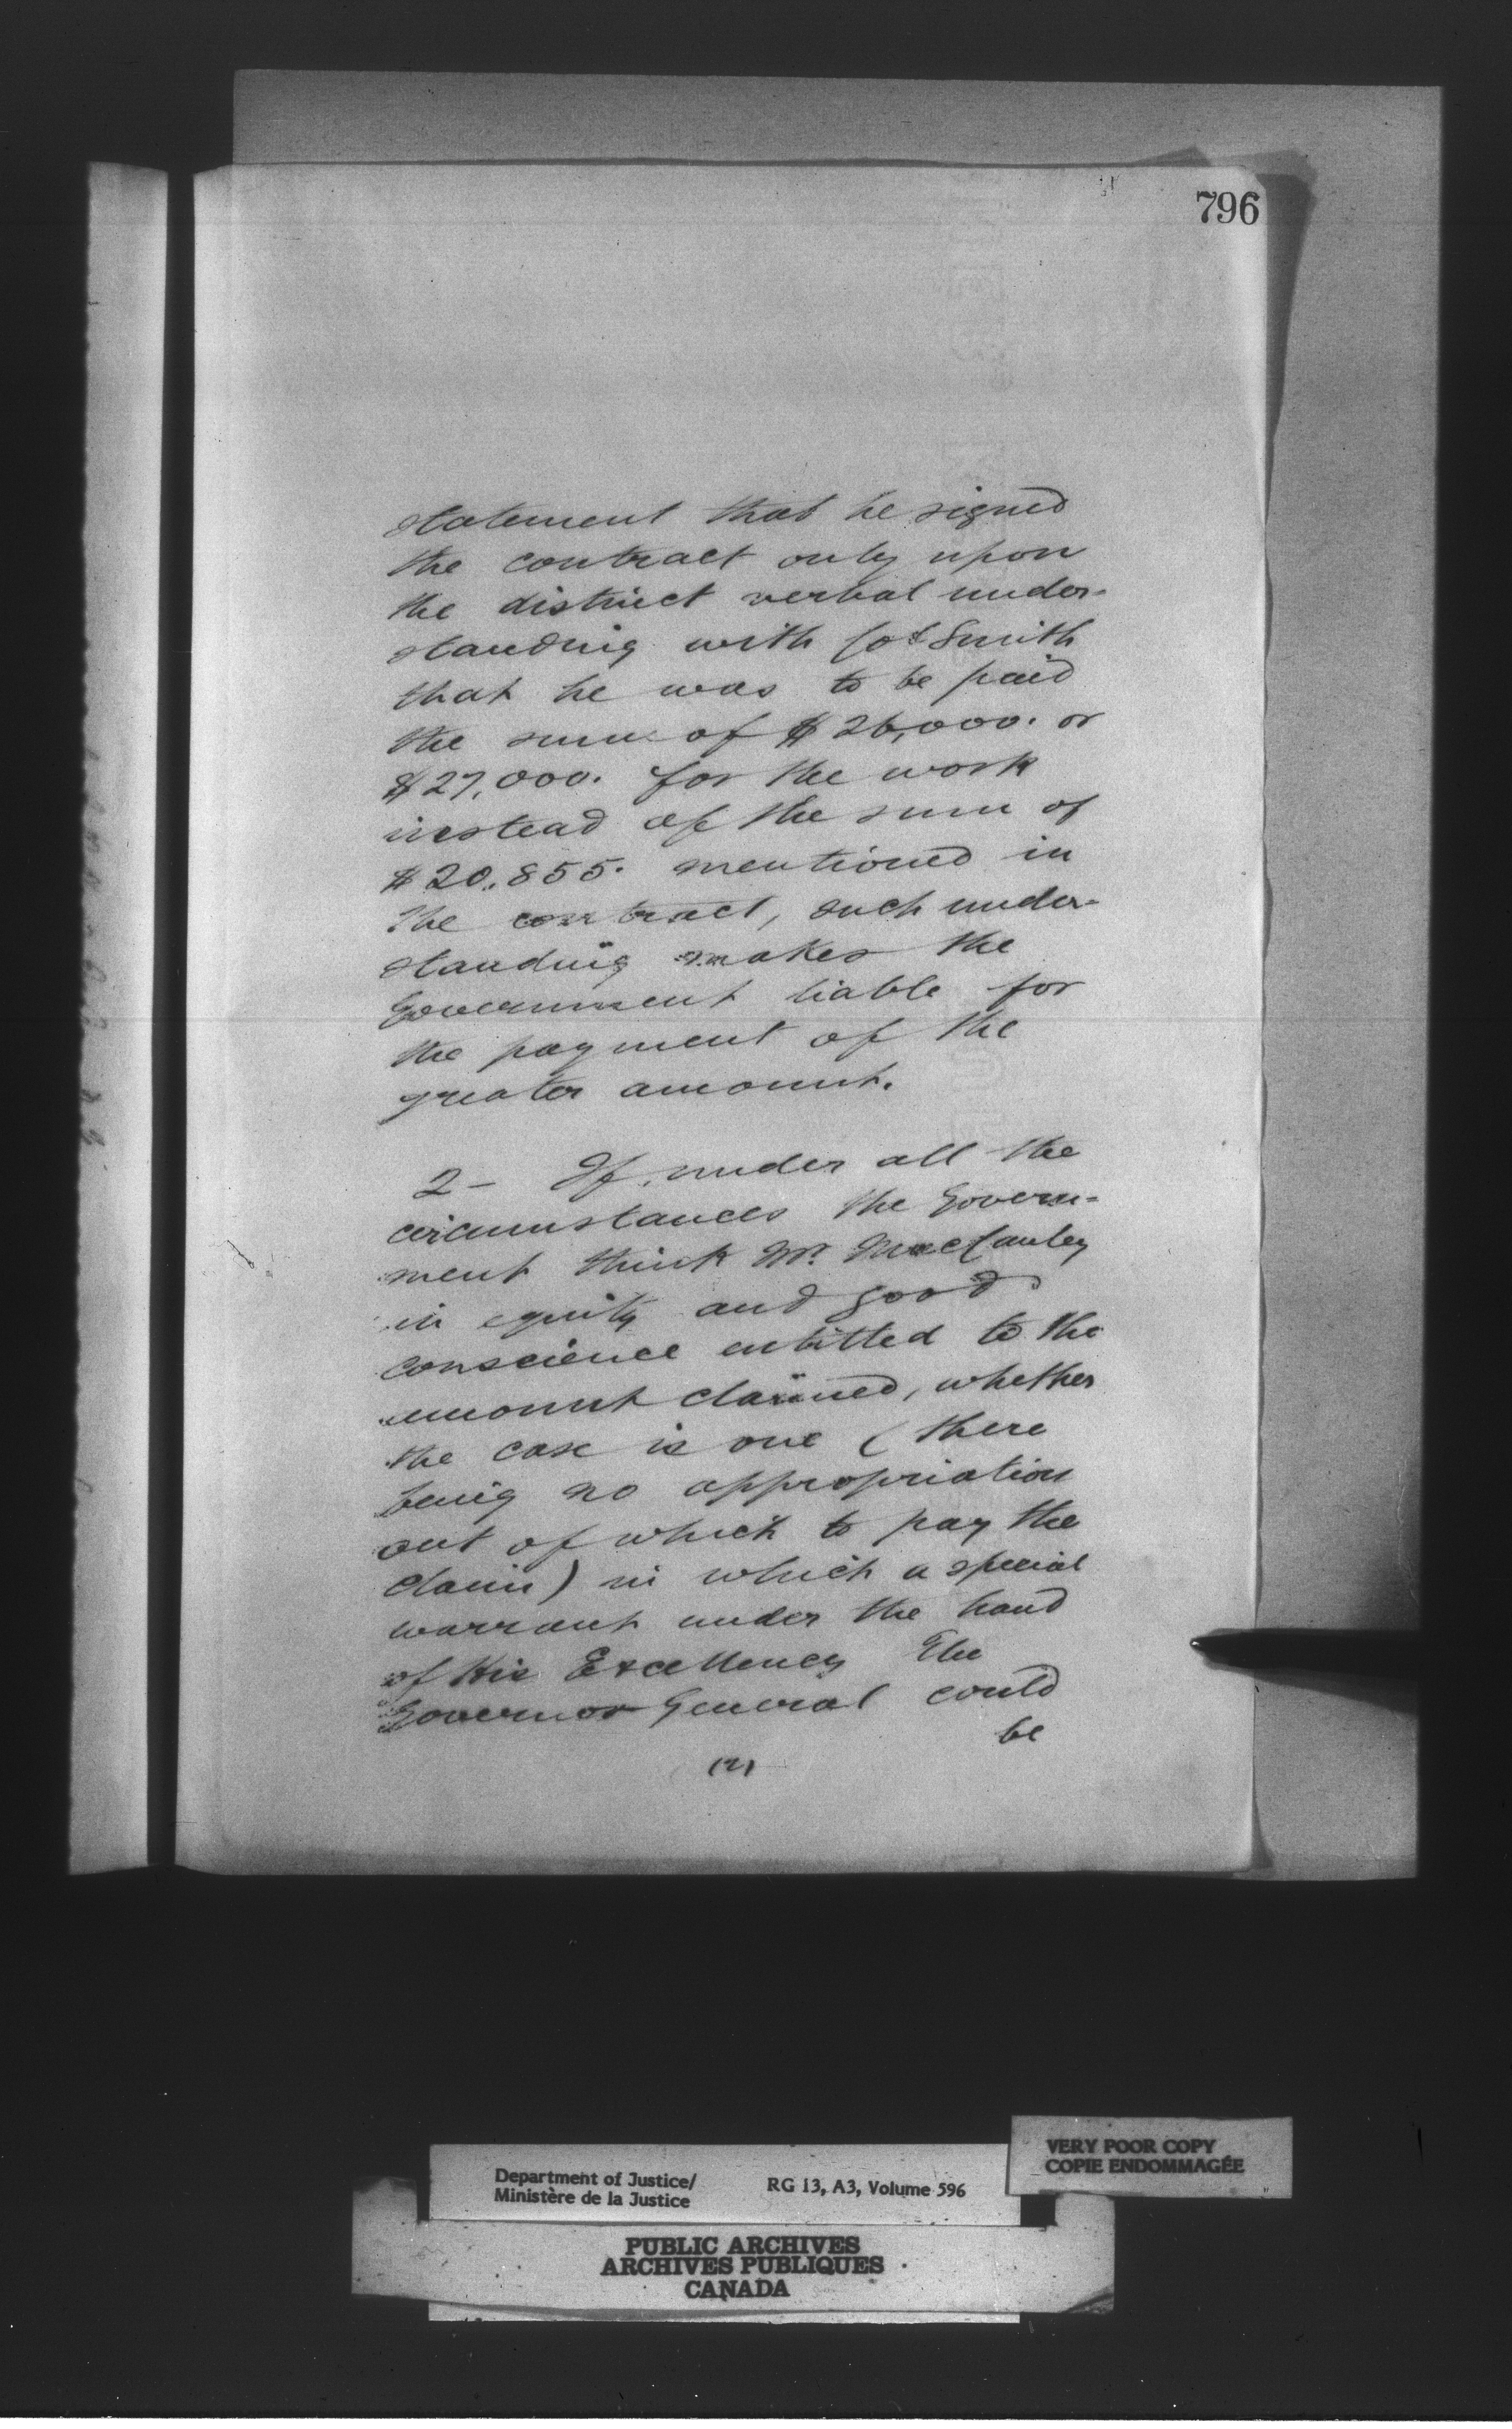 796
statement that he signed
the contract only upon
the distinct verbal under-
standing with Col Smith
that he was to be paid
the sum of $26,000. or
$27,000. for the work
instead of the sum of
$20.855. mentioned in
the contract, such under-
standing makes the
Government liable for
the payment of the
greater amount.
2- If, under all the
circumstances the Govern-
ment think Mr. MacCauley
in equity and good
conscience entitled to the
amount claimed, whether
the case is one (there
being no appropriation
out of which to pay the
claim) in which a special
warrant under the hand
of His Excellency The
Governor General could
be
(2)
VERY POOR COPY
COPIE ENDOMMAGÉE
Department of Justice/
Ministère de la Justice
RG 13, A3, Volume 596
PUBLIC ARCHIVES
ARCHIVES PUBLIQUES
CANADA